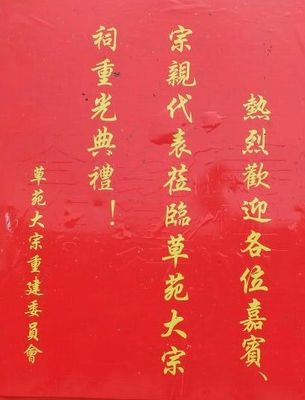 熱烈歡迎各位嘉賓、
宗親代表莅臨草苑大宗
祠重光典禮！
草苑大宗重建委員會